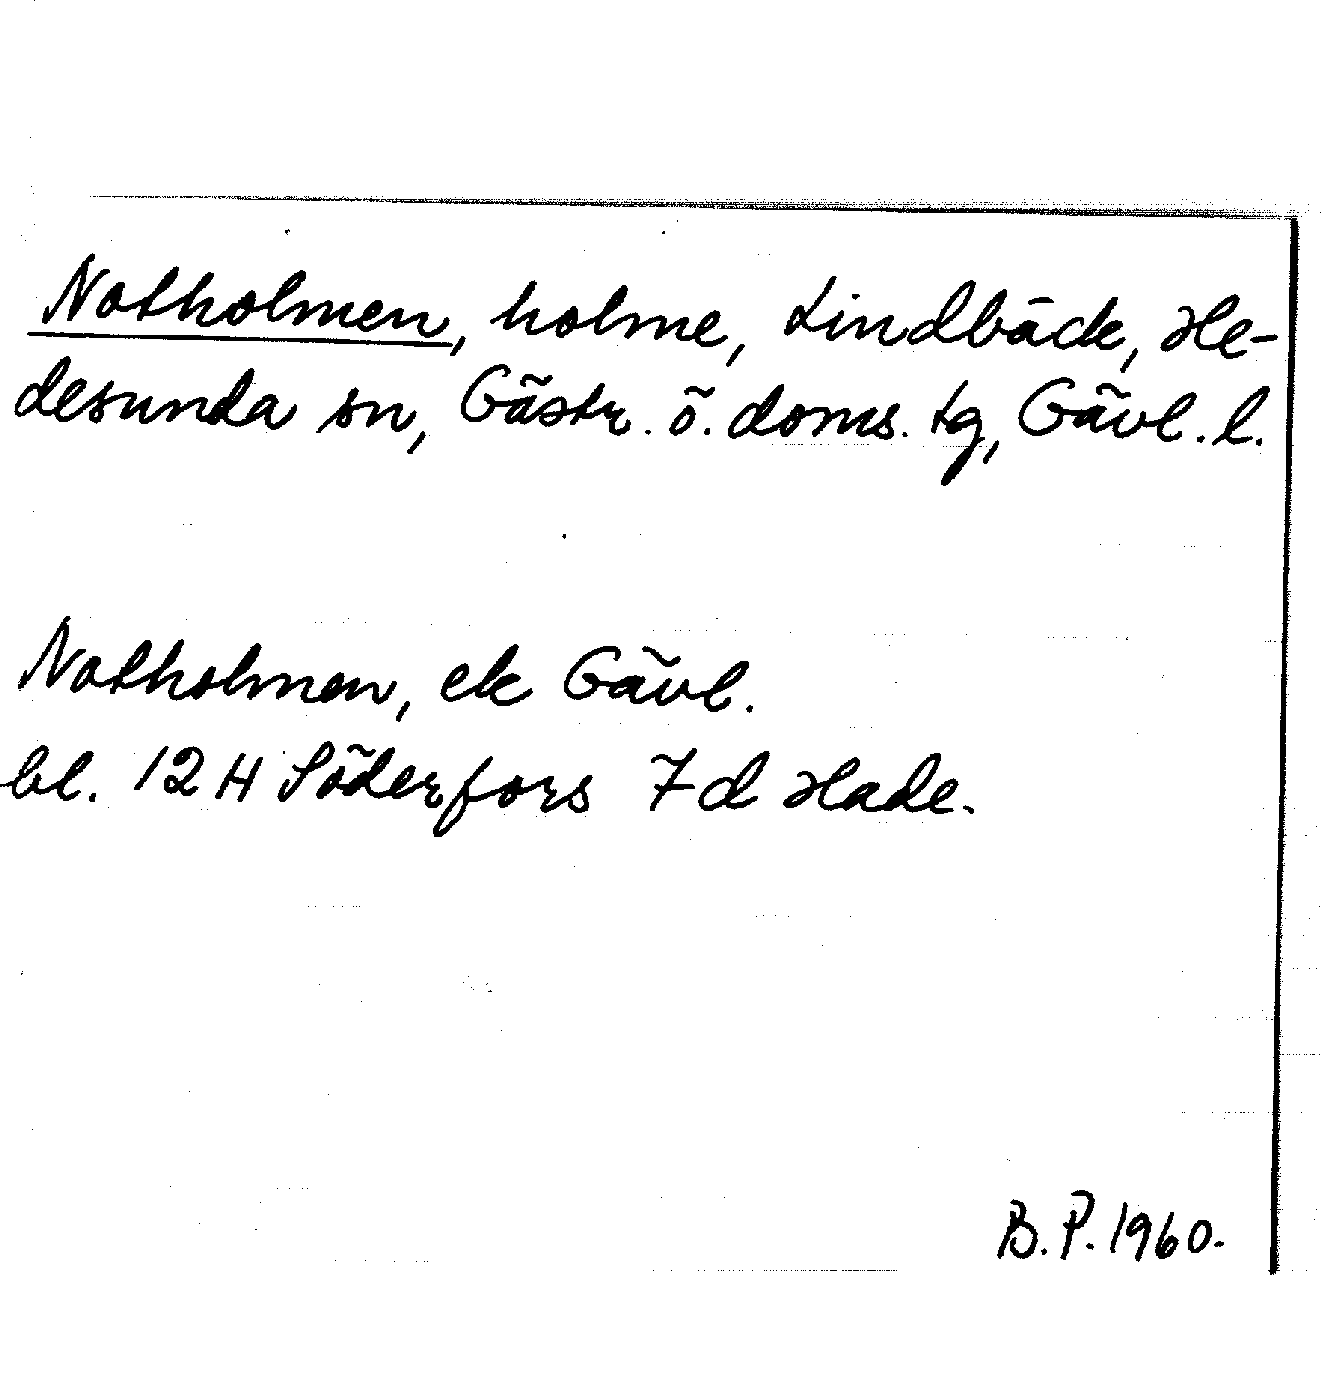 Notholmen, holme, Lindbäck, He-
desunda sn, Gästr. ö. doms. tg, Gävl. l.
Notholmen, ek Gävl.
bl. 12 H Söderfors 7 d Hade.
B. P. 1960.